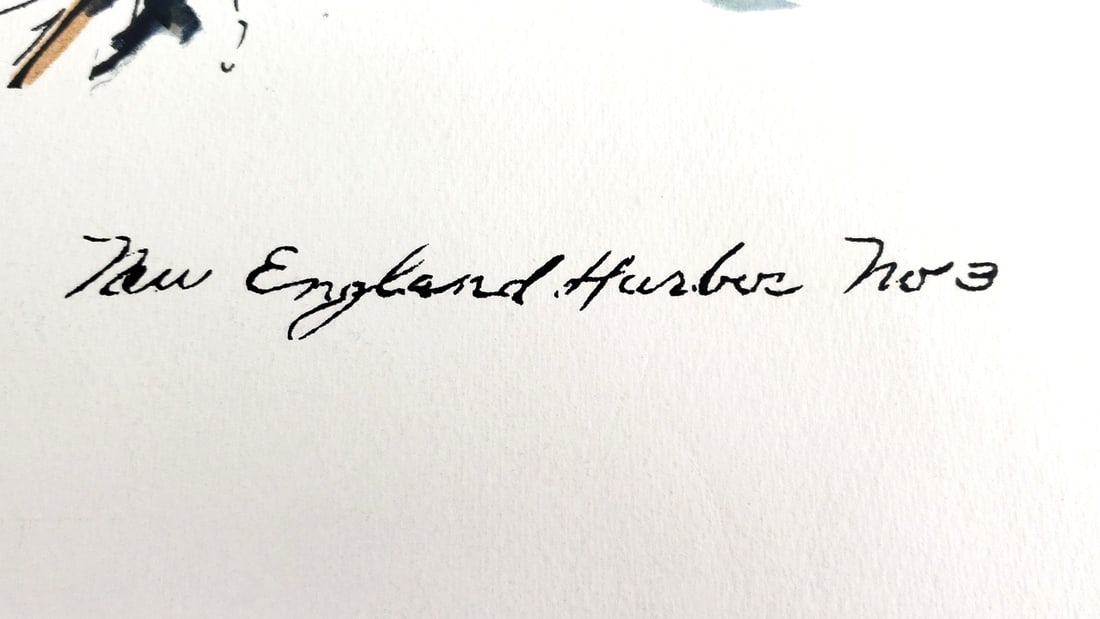 New England Harbor No 3